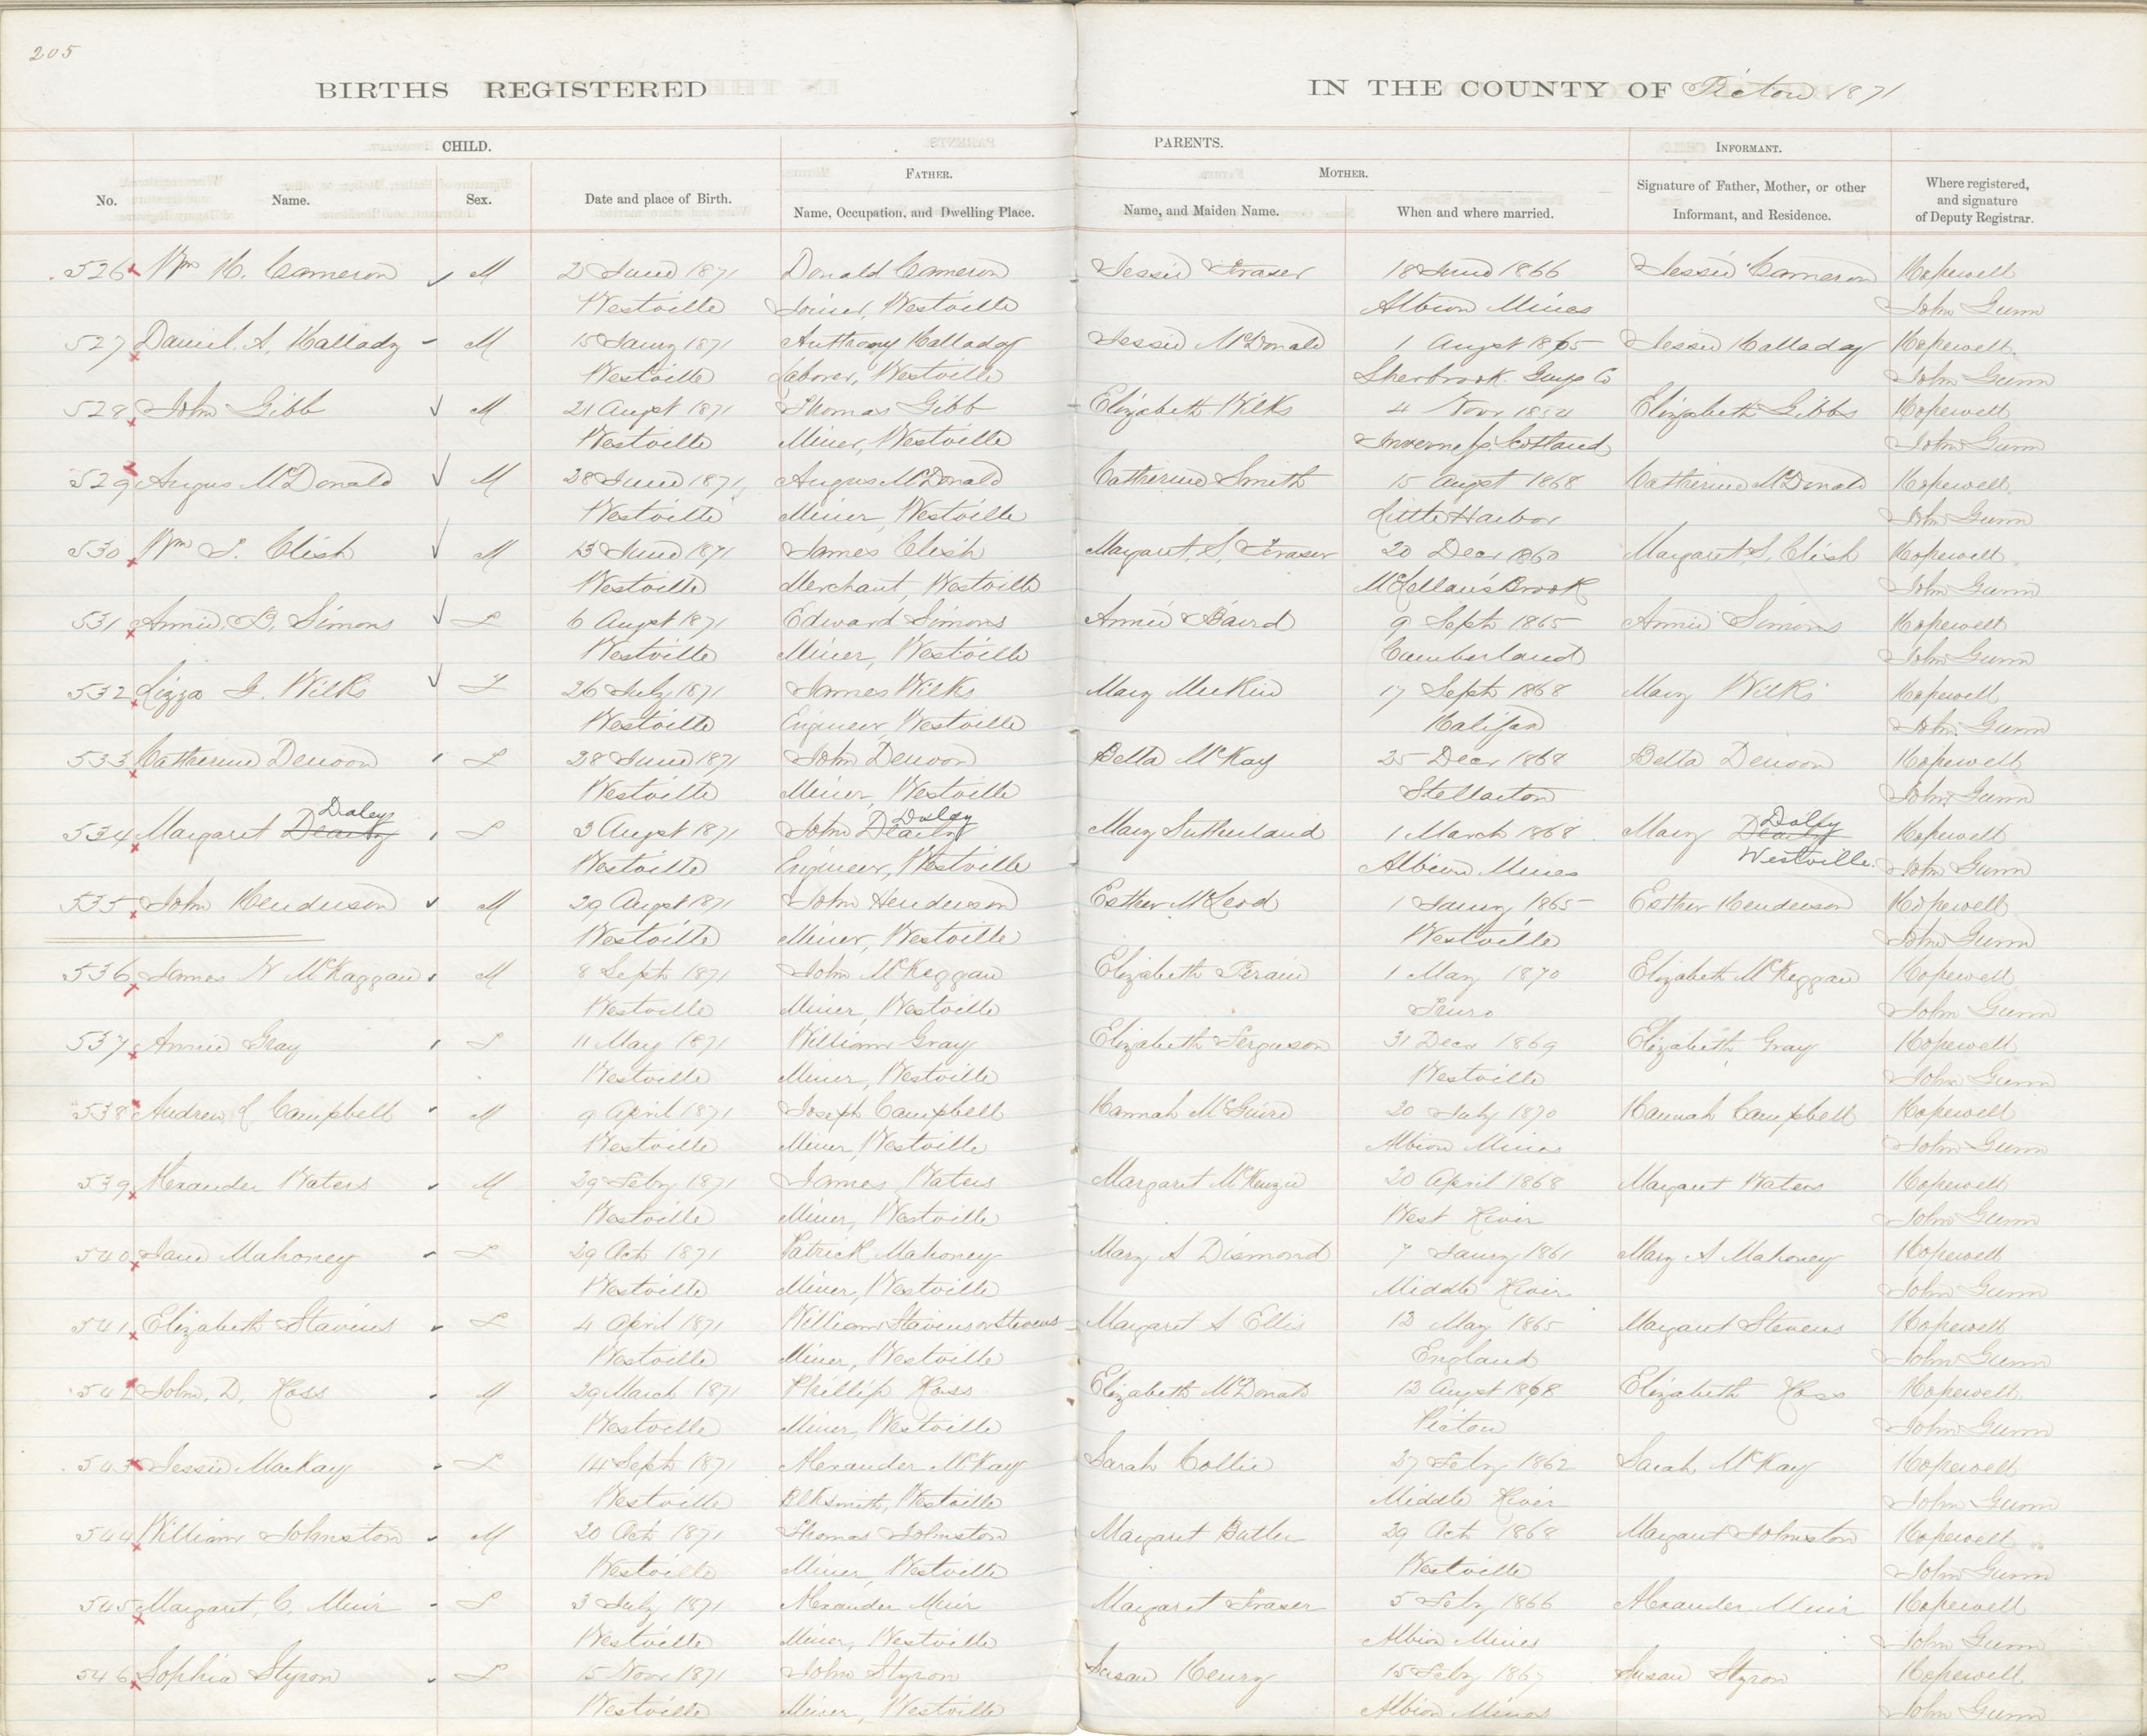 205
BIRTHS REGISTERED IN THE COUNTY OF Pictou 1871
CHILD. PARENTS. INFORMANT.
FATHER. MOTHER.
No. Name. Sex. Date and place of Birth. Name, Occupation, and Dwelling Place. Name, and Maiden Name. When and where married. Signature of Father, Mother, or other Informant, and Residence. Where registered, and signature of Deputy Registrar.
526 Wm H. Cameron M 2 June 1871 Donald Cameron Jessie Fraser 18 June 1866 Jessie Cameron Hopewell
Westville Joiner, Westville Albion Mines John Gunn
527 Daniel. A. Halladay M 15 Jany 1871 Anthony Halladay Jessie McDonald 1 Augst 1865 Jessie Halladay Hopewell.
Westville Laborer, Westville Sherbrook. Guys Co John Gunn
528 John Gibb M 21 Augst 1871 Thomas Gibb Elizabeth Wilks 4 Novr Elizabeth Gibbs Hopewell
Westville Miner, Westville Inverness Scotland John Gunn
529 Angus McDonald M 28 June 1871 Angus McDonald Catherine Smith 15 Augst 1868 Catherine McDonald Hopewell.
Westville Miner, Westville Little Harbor John Gunn
530 Wm J. Clish M 13 June 1871 James Clish Margaret. S. Fraser 20 Decr 1860 Margaret. S. Clish Hopewell
Westville Merchant, Westville McLellan's Brook John Gunn
531 Annie. B. Simons F 6 Augst 1871 Edward Simons Annie Baird 9 Septr 1865 Annie Simons Hopewell
Westville Miner, Westville Cumberland John Gunn
532 Lizza G. Wilks F 26 July 1871 James Wilks Mary Meekin 17 Septr 1868 Mary Wilks Hopewell
Westville Engineer, Westville Halifax John Gunn
533 Catherine Denoon F 28 June 1871 John Denoon Bella McKay 25 Decr 1868 Bella Denoon Hopewell
Westville Miner, Westville Stellarton John Gunn
Daley Daley Dally
534 Margaret F 3 Augst 1871 John Mary Sutherland 1 March 1868 Mary Hopewell
Westville Engineer, Westville Albion Mines Westville. John Gunn
535 John Henderson M 29 Augst 1871 John Henderson Esther McLeod 1 Jany 1865 Esther Henderson Hopewell
Westville Miner, Westville Westville John Gunn
536 James W McKaggan M 8 Septr 1871 John McKeggan Elizabeth Perain 1 May 1870 Elizabeth McKeggan Hopewell
Westville Miner, Westville Truro John Gunn
537 Annie Gray F 11 May 1871 William Gray Elizabeth Ferguson 31 Decr 1869 Elizabeth Gray Hopewell
Westville Miner, Westville Westville John Gunn
538 Andrew. L. Campbell M 9 April 1871 Joseph Campbell Hannah McGuire 20 July 1870 Hannah Campbell Hopewell
Westville Miner, Westville Albion Mines John Gunn
539 Alexander Waters M 29 Feby 1871 James Waters Margaret McKenzie 20 April 1868 Margaret Waters Hopewell
Westville Miner, Westville West River John Gunn
540 Jane Mahoney F 29 Oct 1871 Patrick Mahoney Mary A Dismond 7 Jany 1861 Mary A Mahoney Hopewell
Westville Miner, Westville Middle River John Gunn
541 Elizabeth Stavins F 4 April 1871 William Stavins or Stevens Margaret A Ellis 12 May 1865 Margaret Stevens Hopewell
Westville Miner, Westville England John Gunn
542 John. D. Ross M 29 March 1871 Phillip Ross Elizabeth McDonald 12 Augst 1868 Elizabeth Ross Hopewell
Westville Miner, Westville Pictou John Gunn
543 Jessie MacKay F 14 Septr 1871 Alexander McKay Sarah Collie 27 Feby 1862 Sarah McKay Hopewell
Westville Blksmith, Westville Middle River John Gunn
544 William Johnston M 20 Oct 1871 Thomas Johnston Margaret Butler 29 Oct 1868 Margaret Johnston Hopewell
Westville Miner, Westville Westville John Gunn
545 Margaret. C. Muir F 3 July 1871 Alexander Muir Margaret Fraser 5 Feby 1866 Alexander Muir Hopewell
Westville Miner, Westville Albion Mines John Gunn
546 Sophia Styron F 15 Novr 1871 John Styron Susan Henry 15 Feby 1867 Susan Styron Hopewell
Westville Miner, Westville Albion Mines John Gunn